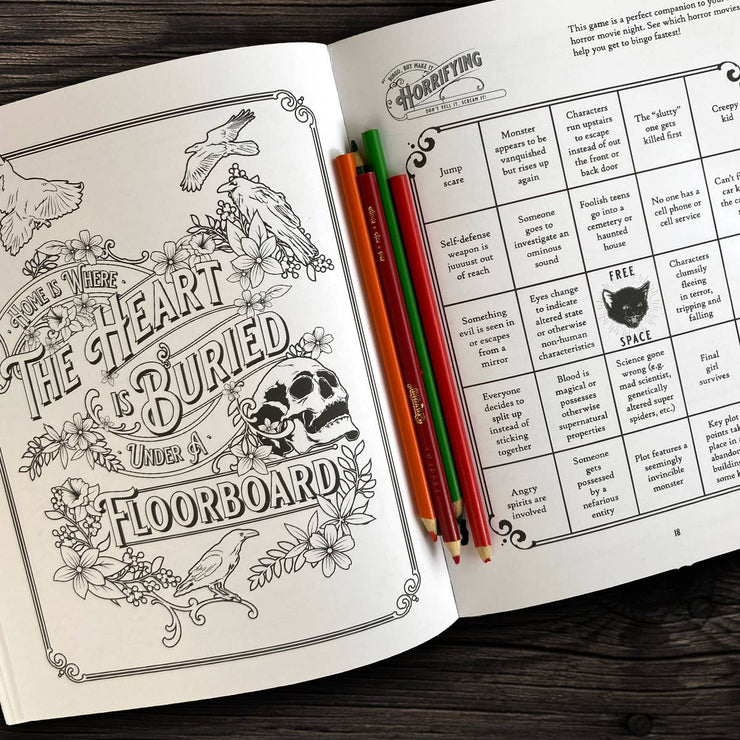 HOME IS WHERE
THE HEART
IS BURIED
UNDER A
FLOORBOARD
This game is a perfect companion to your
horror movie night. See which horror movies
help you get to bingo fastest!
BINGO, BUT MAKE IT
HORRIFYING
DON'T YELL IT, SCREAM IT!
Jump
scare
Monster
appears to be
vanquished
but rises up
again
Characters
run upstairs
to escape
instead of out
the front or
back door
The "slutty"
one gets
killed first
Creepy
kid
Self-defense
weapon is
juuuust out
of reach
Someone
goes to
investigate an
ominous
sound
Foolish teens
go into a
cemetery or
haunted
house
No one has a
cell phone or
cell service
Can't f
car k
the ca
Something
evil is seen in
or escapes
from a
mirror
Eyes change
to indicate
altered state
or otherwise
non-human
characteristics
FREE
SPACE
Characters
clumsily
fleeing
in terror,
tripping and
falling
Everyone
decides to
split up
instead of
sticking
together
Blood is
magical or
possesses
otherwise
supernatural
properties
Science gone
wrong (e.g.
mad scientist,
genetically
altered super
spiders, etc.)
Final
girl
survives
Key plot
points take
place in a
abandon
building
some k
Angry
spirits are
involved
Someone
gets
possessed
by a
nefarious
entity
Plot features a
seemingly
invincible
monster
18